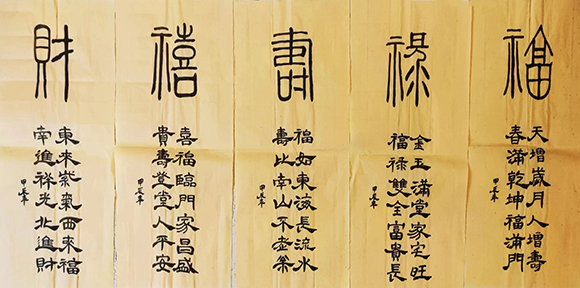 福
天增歲月人增壽
春滿乾坤福滿門
禄
金玉滿堂家宅旺
福禄雙全富貴長
甲辰年
壽
福如東海長流水
壽比南山不老翁
甲辰年
禧
喜福臨門家昌盛
貴壽登堂人平安
甲辰年
財
東來紫氣西來福
南進祥光北進財
甲辰年